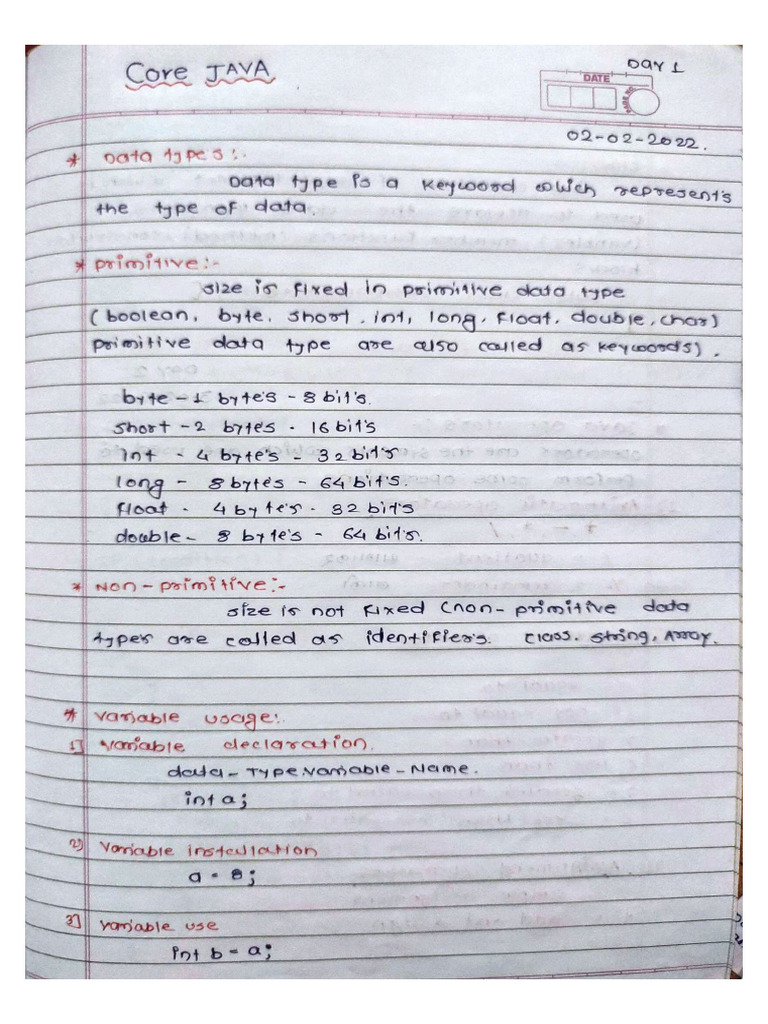 Core JAVA
Day 1
DATE
PAGE NO.
02-02-2022.
* Data types:-
Data type is a keyword which represent's
the type of data.
* primitive:-
size is fixed in primitive data type
(boolean, byte, short, int, long, float, double, char)
primitive data type are also called as keywords).
byte - 1 byte's - 8 bit's.
short - 2 byte's - 16 bit's
int - 4 byte's - 32 bit's
long - 8 bytes - 64 bit's.
float - 4 byte's - 32 bit's
double - 8 byte's - 64 bit's.
* Non-primitive:-
size is not fixed (non-primitive data
types are called as identifier's. class, string, Array.
* variable usage:-
1] variable declaration.
data-Type.variable-Name.
int a;
2] variable installation
a = 8;
3] variable use
int b = a;